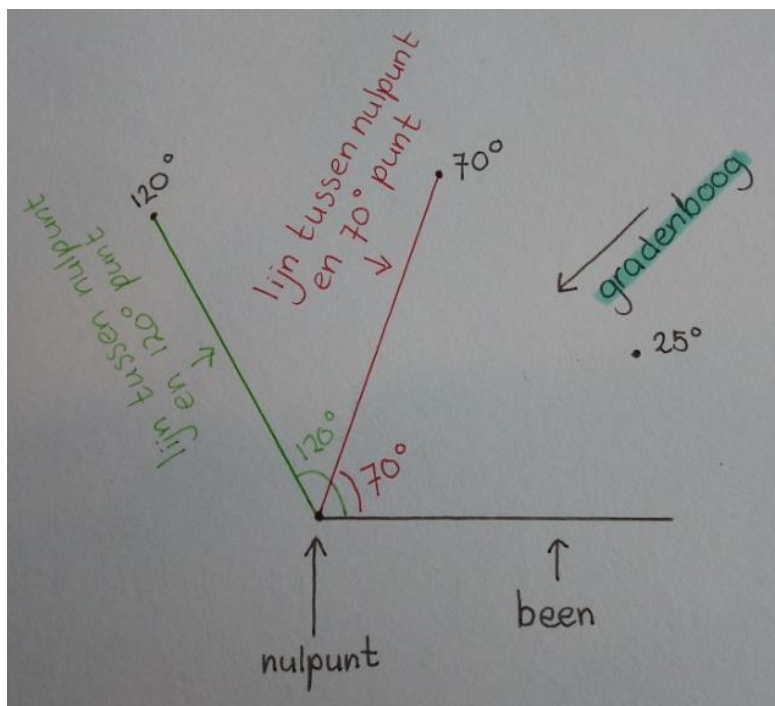 120°
lijn tussen nulpunt
en 120° punt
lijn tussen nulpunt
en 70° punt
70°
gradenboog
25°
120°
70°
nulpunt
been